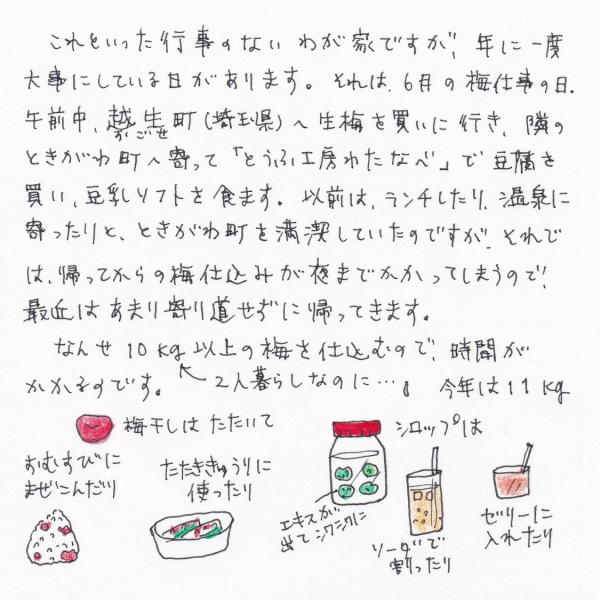 これといった行事のない わが家ですが、年に一度
大事にしている日があります。それは、6月の梅仕事の日.
午前中、越生町(埼玉県)へ生梅を買いに行き、隣の
おごせ
ときがわ町へ寄って「とうふ工房わたなべ」で豆腐を
買い、豆乳ソフトを食ます。以前は、ランチしたり、温泉に
寄ったりと、ときがわ町を満喫していたのですが、それで
は、帰ってからの梅仕込みが夜までかかってしまうので、
最近はあまり寄り道せずに帰ってきます。
なんせ10kg以上の梅を仕込むので、時間が
かかるのです。 ↖2人暮らしなのに…。 今年は11kg
梅干しは たたいて
おむすびに
まぜこんだり
たたききゅうりに
使ったり
シロップは
エキスが
出てシワシワに
ソーダで
割ったり
ゼリーに
入れたり